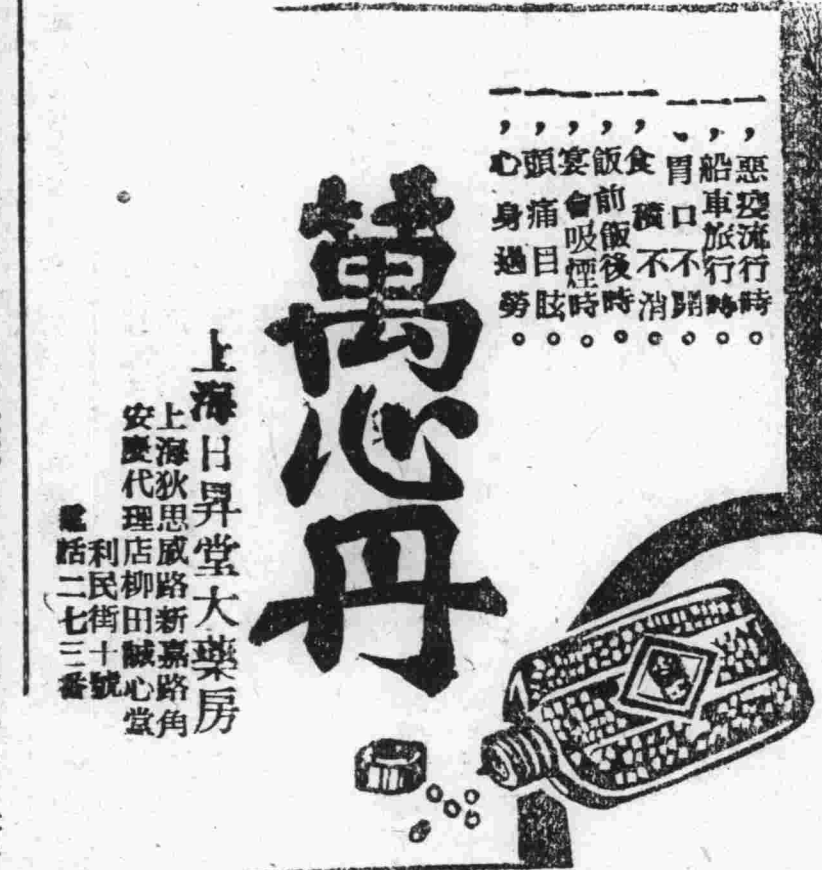 一，惡疫流行時。
一，船車旅行時。
一、胃口不開。
一，食積不消。
一，飯前飯後時。
一，宴會吸煙時。
一，頭痛目眩。
一，心身過勞。
萬心丹
上海日昇堂大藥房
上海狄思威路新嘉路角
安慶代理店柳田誠心堂
利民街十號
電話二七三番